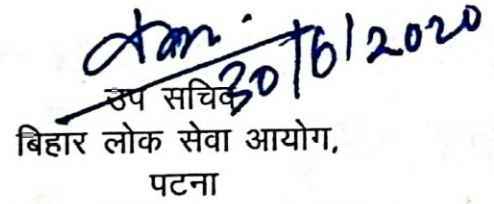 30/6/2020
उप सचिव
बिहार लोक सेवा आयोग,
पटना